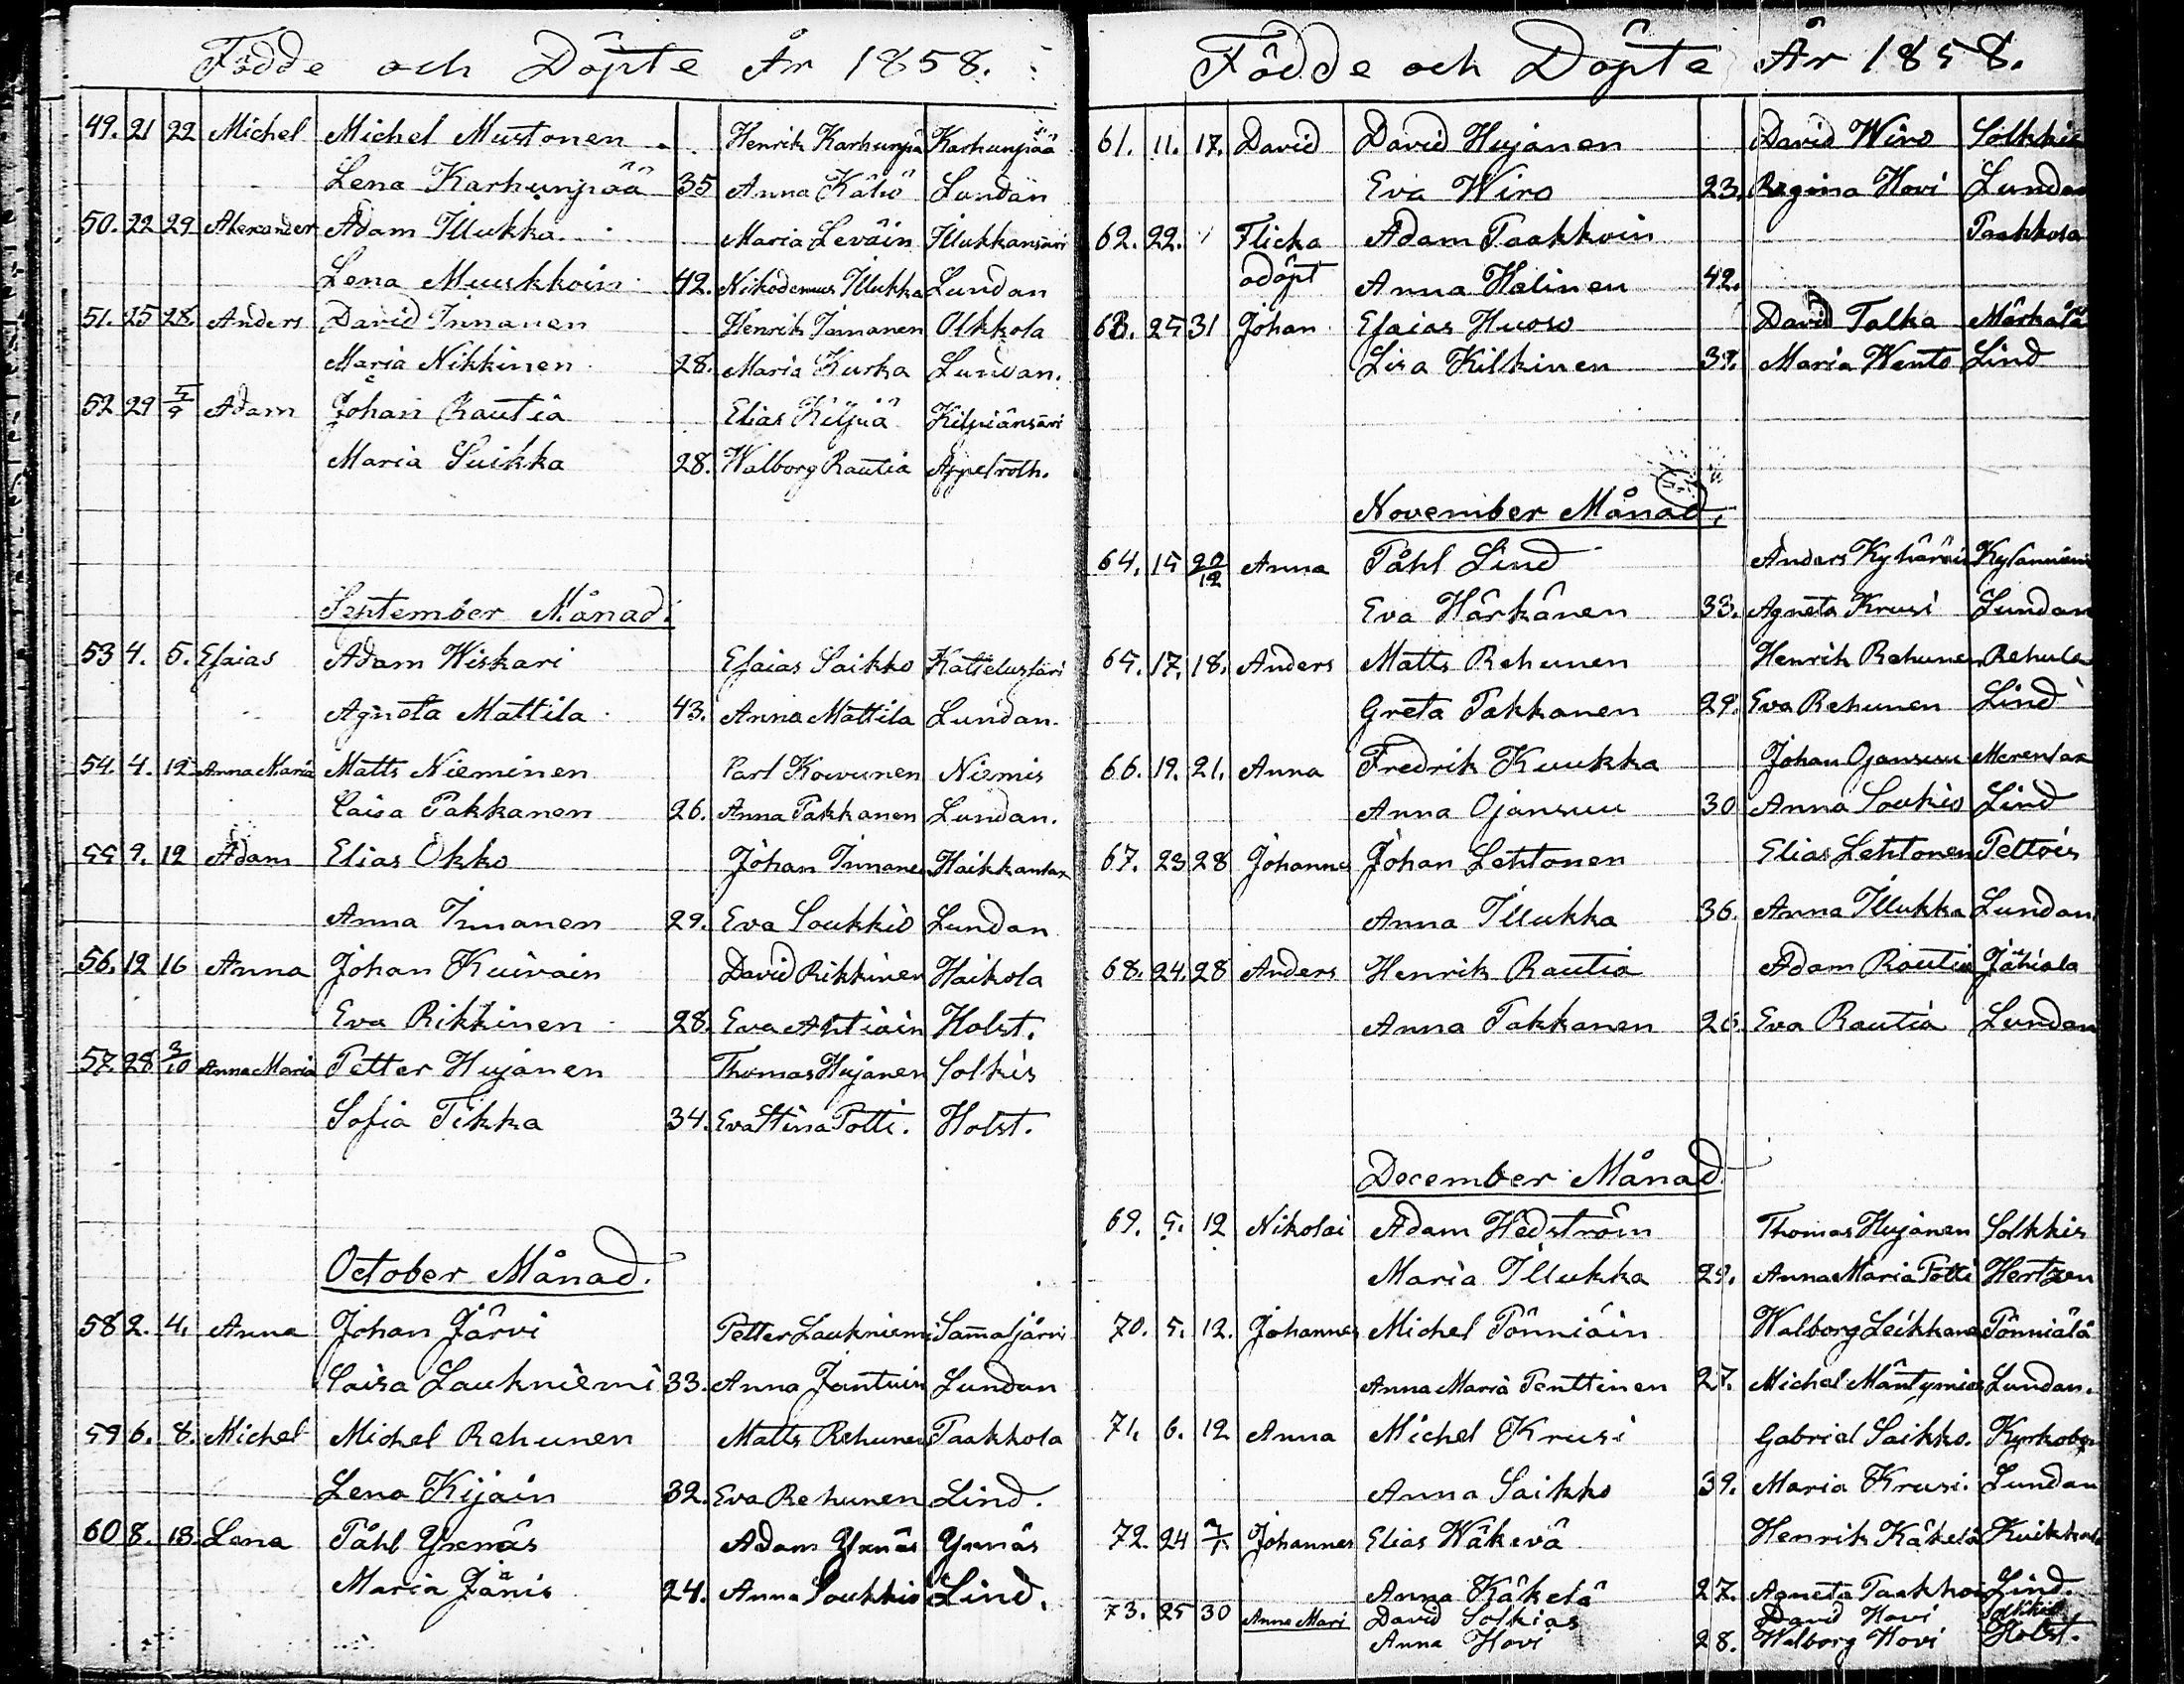 Födde och Döpte År 1858.
49. 21 22 Michel Michel Mustonen Henrik Karhunpä Karhunpää
Lena Karhunpää 35 Anna Kähö Lundan
50. 22 29 Alexander Adam Illukka Maria Leväin Illukkansari
Lena Muukkoin 42. Nikodemus Illukka Lundan
51. 25 28. Anders David Inmanen Henrik Inmanen Olkkola
Maria Nikkinen 28. Maria Kurka Lundan.
52 29 5/9 Adam Johan Rautia Elias Kilpiä Kilpiänsari
Maria Suikka 28. Walborg Rautia Appelroth.
September Månad.
53 4. 5. Esaias Adam Wiskari Esaias Saikko Kattelussari
Agneta Mattila 43. Anna Mattila Lundan.
54. 4. 12 Anna Maria Matts Nieminen Carl Kowunen Niemis
Caisa Pakkanen 26. Anna Pakkanen Lundan.
55 9. 12 Adam Elias Okko Johan Inmanen Haikkanlax
Anna Inmanen 29. Eva Soukkio Lundan
56. 12 16 Anna Johan Kuivain David Rikkinen Haikola
Eva Rikkinen 28. Eva Ahtiain Holst.
57. 28 3/10 Anna Maria Petter Hujanen Thomas Hujanen Solkis
Sofia Tikka 34. Eva Stina Potti. Holst.
October Månad.
58 2. 4. Anna Johan Järvi Petter Laukniemi Samaljärvi
Caisa Laukniemi 33. Anna Jantuin Lundan
59 6. 8. Michel Michel Rehunen Matts Rehunen Paakkola
Lena Kijäin 32. Eva Rehunen Lind.
60 8. 18. Lena Påhl Yxnäs Adam Yxnäs Yxnäs
Maria Jänis 24. Anna Soukkio Lind.
Födde och Döpte År 1858.
61. 11. 17. David David Hujanen David Wiro Solkkis
Eva Wiro 23. Regina Hovi Lundan
62. 22. Flicka Adam Paakkoin Paakkola
odöpt Anna Halinen 42.
63. 25 31 Johan Esaias Huoso David Talka Märkälä
Lisa Kilkinen 39. Maria Wento Lind
November Månad.
64. 15 20/12 Anna Påhl Lind Anders Kylanniemi
Eva Härkänen 33. Agneta Krusi Lundan
65. 17. 18. Anders Matts Rehunen Henrik Rehunen Rehula
Greta Pakkanen 29. Eva Rehunen Lind
66. 19. 21. Anna Fredrik Kuukka Johan Ojansuu Merenlax
Anna Ojansuu 30 Anna Soukio Lind
67. 23 28 Johannes Johan Lehtonen Elias Lehtonen Peltois
Anna Illukka 36. Anna Illukka Lundan
68. 24. 28 Anders Henrik Rautia Adam Rautia Jähiala
Anna Pakkanen 26. Eva Rautia Lundan
December Månad.
69. 5. 12 Nikolai Adam Hedström Thomas Hujanen Solkkis
Maria Illukka 29. Anna Maria Potti Hertzen
70. 5. 12. Johannes Michel Pönniäin Walborg Leikkanen Pönniälä
Anna Maria Penttinen 27. Michel Mäntymies Lundan.
71. 6. 12 Anna Michel Krusi Gabriel Saikko. Kyrkoby
Anna Saikko 39. Maria Krusi. Lundan
72. 24 Johannes Elias Wäkevä Henrik Käkelä
Anna Käkelä 27. Agneta Paakkoi Lind.
73. 25 30 Anna Mari David Solkias David Hovi Solkkis
Anna Hovi 28. Walborg Hovi Holst.